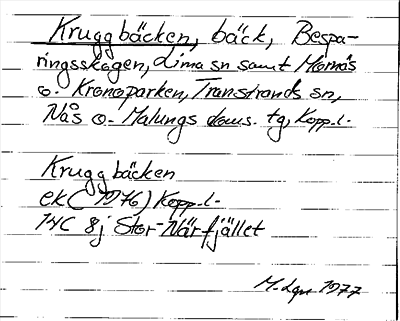 Kruggbäcken, bäck, Bespa-
ringsskogen, Lima sn samt Mornäs
o. Kronoparken, Transtrands sn,
Nås o. Malungs doms. tg, Kopp. l.
Kruggbäcken
ek (1976) Kopp. l.
14C 8j Stor-Närfjället
M. Lgn 1977